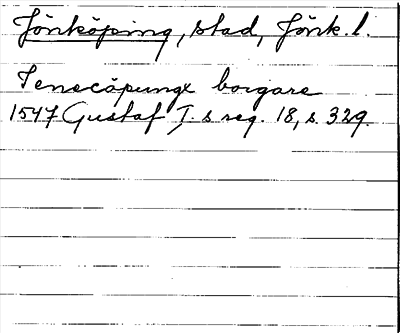 Jönköping, stad, Jönk. l.
Jenecöpungx borgare
1547 Gustaf I:s reg. 18, s. 329.